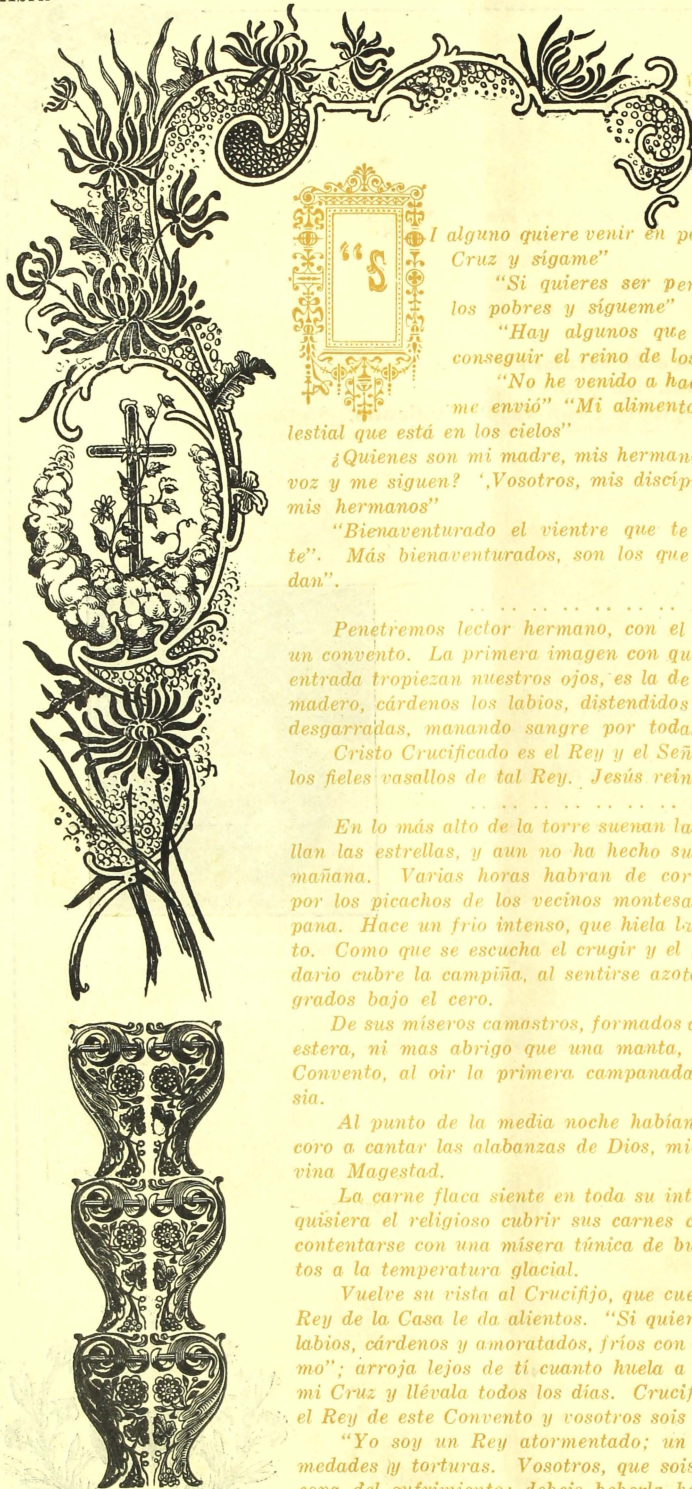 "S
I alguno quiere venir en p
Cruz y sígame"
"Si quieres ser per
los pobres y sígueme"
"Hay algunos que
conseguir el reino de los
"No he venido a hac
me envió" "Mi alimento
lestial que está en los cielos"
¿Quienes son mi madre, mis herman
voz y me siguen? ',Vosotros, mis discíp
mis hermanos"
"Bienaventurado el vientre que te
te". Más bienaventurados, son los que
dan".
Penetremos lector hermano, con el
un convento. La primera imagen con qu
entrada tropiezan nuestros ojos, es la de
madero, cárdenos los labios, distendidos
desgarradas, manando sangre por toda
Cristo Crucificado es el Rey y el Señ
los fieles vasallos de tal Rey. Jesús rein
En lo más alto de la torre suenan la
llan las estrellas, y aun no ha hecho su
mañana. Varias horas habran de cor
por los picachos de los vecinos montes
pana. Hace un frio intenso, que hiela
to. Como que se escucha el crugir y el
dario cubre la campiña, al sentirse azot
grados bajo el cero.
De sus míseros camastros, formados
estera, ni mas abrigo que una manta,
Convento, al oir la primera campanada
sia.
Al punto de la media noche habían
coro a cantar las alabanzas de Dios, mi
vina Magestad.
La carne flaca siente en toda su int
quisiera el religioso cubrir sus carnes c
contentarse con una mísera túnica de bu
tos a la temperatura glacial.
Vuelve su vista al Crucifijo, que cue
Rey de la Casa le da alientos. "Si quier
labios, cárdenos y amoratados, fríos con
mo"; arroja lejos de tí cuanto huela a
mi Cruz y llévala todos los días. Crucif
el Rey de este Convento y vosotros sois
"Yo soy un Rey atormentado; un
medades y torturas. Vosotros, que sois
copa del sufrimiento; debeis beberla